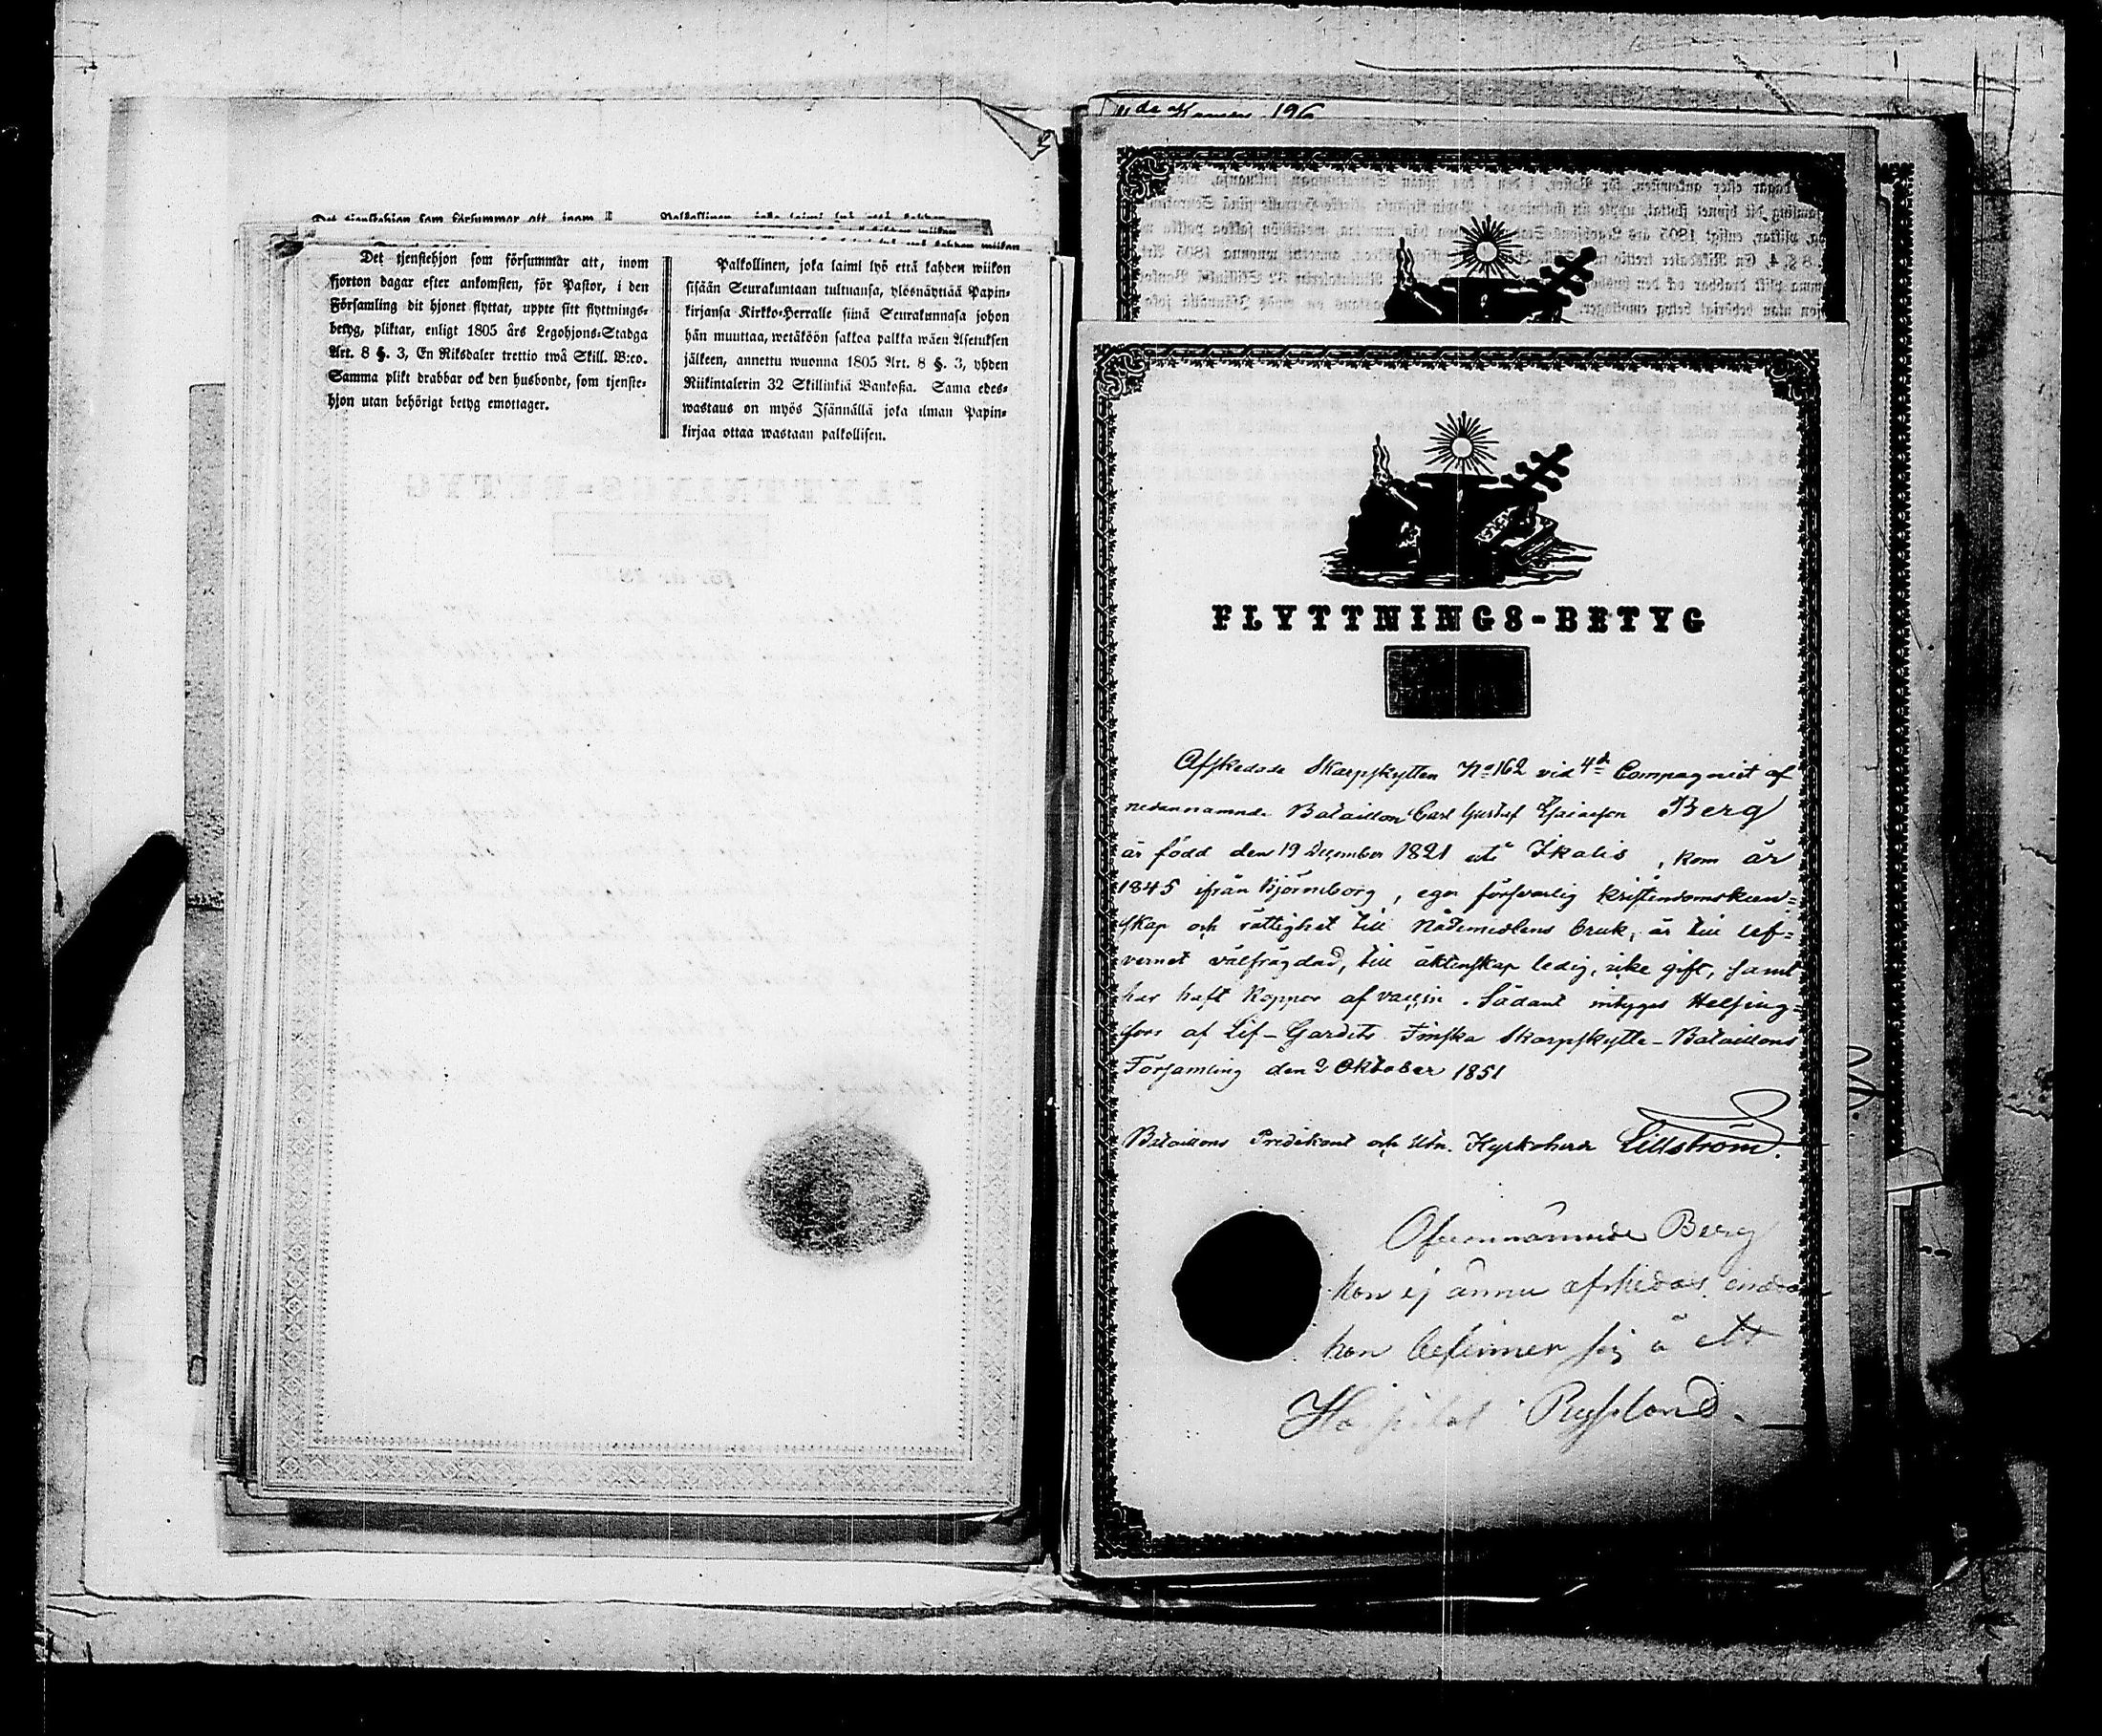 Det tjenstehjon som försummar att, inom
fjorton dagar efter ankomsten, för Pastor, i den
Församling dit hjonet flyttat, uppte sitt flyttnings-
betyg, pliktar, enligt 1805 års Legohjons-Stadga
Art. 8 §. 3, En Riksdaler trettio twå Skill. B:co.
Samma plikt drabbar ock den husbonde, som tjenste-
hjon utan behörigt betyg emottager.
Palkollinen, joka laimi lyö että kahden wiikon
sisään Seurakuntaan tultuansa, ylösnäyttää Papin-
kirjansa Kirkko-Herralle siinä Seurakunnasa johon
hän muuttaa, wetäköön sakkoa palkka wäen Asetuksen
jälkeen, annettu wuonna 1805 Art. 8 §. 3, yhden
Riikintalerin 32 Skillinkiä Bankosa. Sama edes-
wastaus on myös Isännällä joka ilman Papin-
kirjaa ottaa wastaan palkollisen.
196
FLYTTNINGS-BETYG
Afskedade Skarpskytten No 162 vid 4de Compagniet af
nedannamnde Bataillon Carl Gustaf Berg
är född den 19 December 1821 uti Ikalis, kom år
1845 ifrån Björneborg, eger försvarlig kristendomskun-
skap och rättighet till Nådemedlens bruk, är till lef-
vernet välfrägdad, till äktenskap ledig, icke gift, samt
har haft koppor af vaccin. Sådant intygas Helsing-
fors af Lif-Gardets Finska Skarpskytte-Bataillons
Församling den 2 Oktober 1851
Bataillons Predikant och Utn. Kyrkoherde Lillström.
Ofvannämnde Berg
kan ej ännu afskedas, emedan
han befinner sig å ett
Hospital i Ryssland.